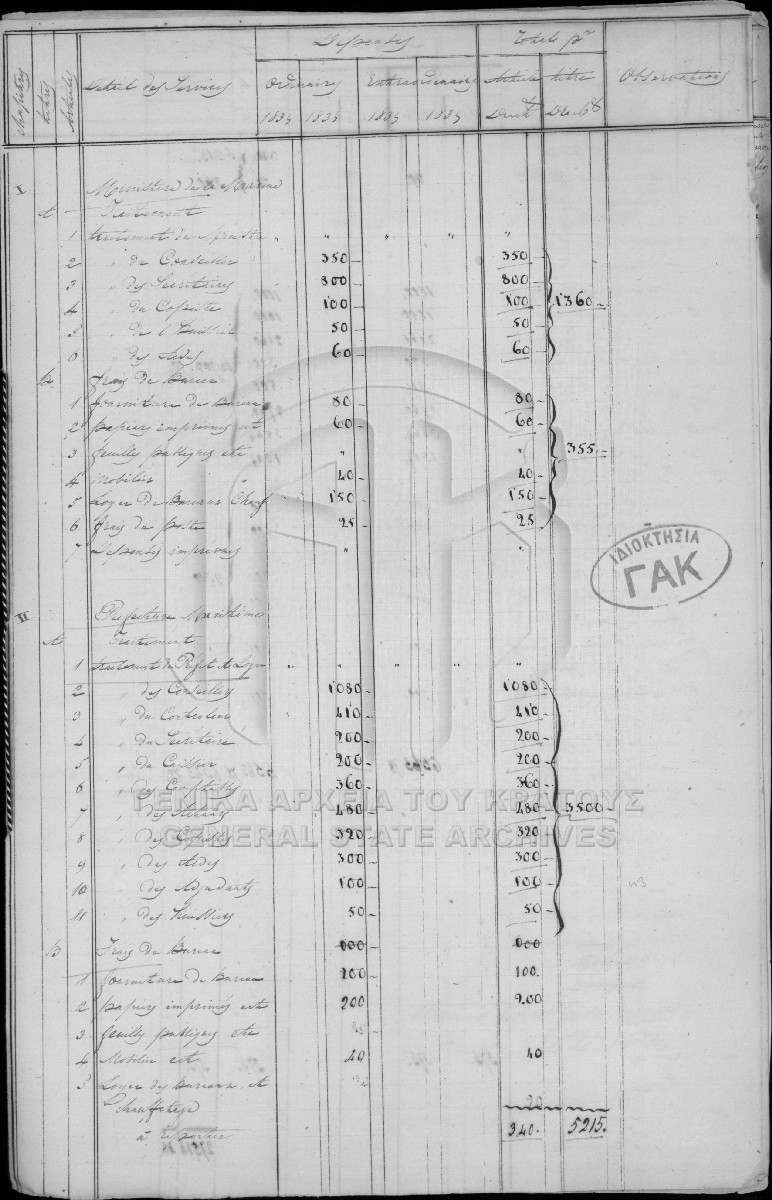 Dépenses Totals pr
Chapitres Lettres Articles Détail des Services Ordinaires Extraordinaires Article Lettre Observations
1834 1835 1834 1835 Dracm Dracm
I Ministère de la Marine
A Traitement
1 traitement du Ministre " " " " "
2 " du Conseiller 350 350
3 " des Secrétaires 800 800
4 " du Copiste 100 100 1360
5 " de l'Huissier 50 50
6 " des Aides 60 60
B frais de Bureau
1 fourniture de Bureau 80 80
2 papiers imprimés etc 60 60
3 feuilles publiques etc " " 355
4 Mobilier 40 40
5 Loyer de Bureau Chauf 150 150
6 frais de poste 25 25
7 Dépenses imprévues " "
ΙΔΙΟΚΤΗΣΙΑ
ΓΑΚ
II Préfecture Maritimes
A Traitement
1 traitement du Préfet " " " " "
2 " des Conseillers 1080 1080
3 " du Controleur 410 410
4 " du Secrétaire 200 200
5 " du Caissier 200 200
6 " des 360 360
ΓΕΝΙΚΑ ΑΡΧΕΙΑ ΤΟΥ ΚΡΑΤΟΥΣ
7 " des 480 480 3500
8 " des 320 320
GENERAL STATE ARCHIVES
9 " des Aides 300 300
10 " des Adjudants 100 100
11 " des Huissiers 50 50
B Frais de Bureau
1 fourniture de Bureau 100
2 papiers imprimés etc 200 200
3 feuilles publiques etc
4 Mobilier etc 40 40
5 Loyer des Bureaux et
Chauffage
à reporter 340 5215